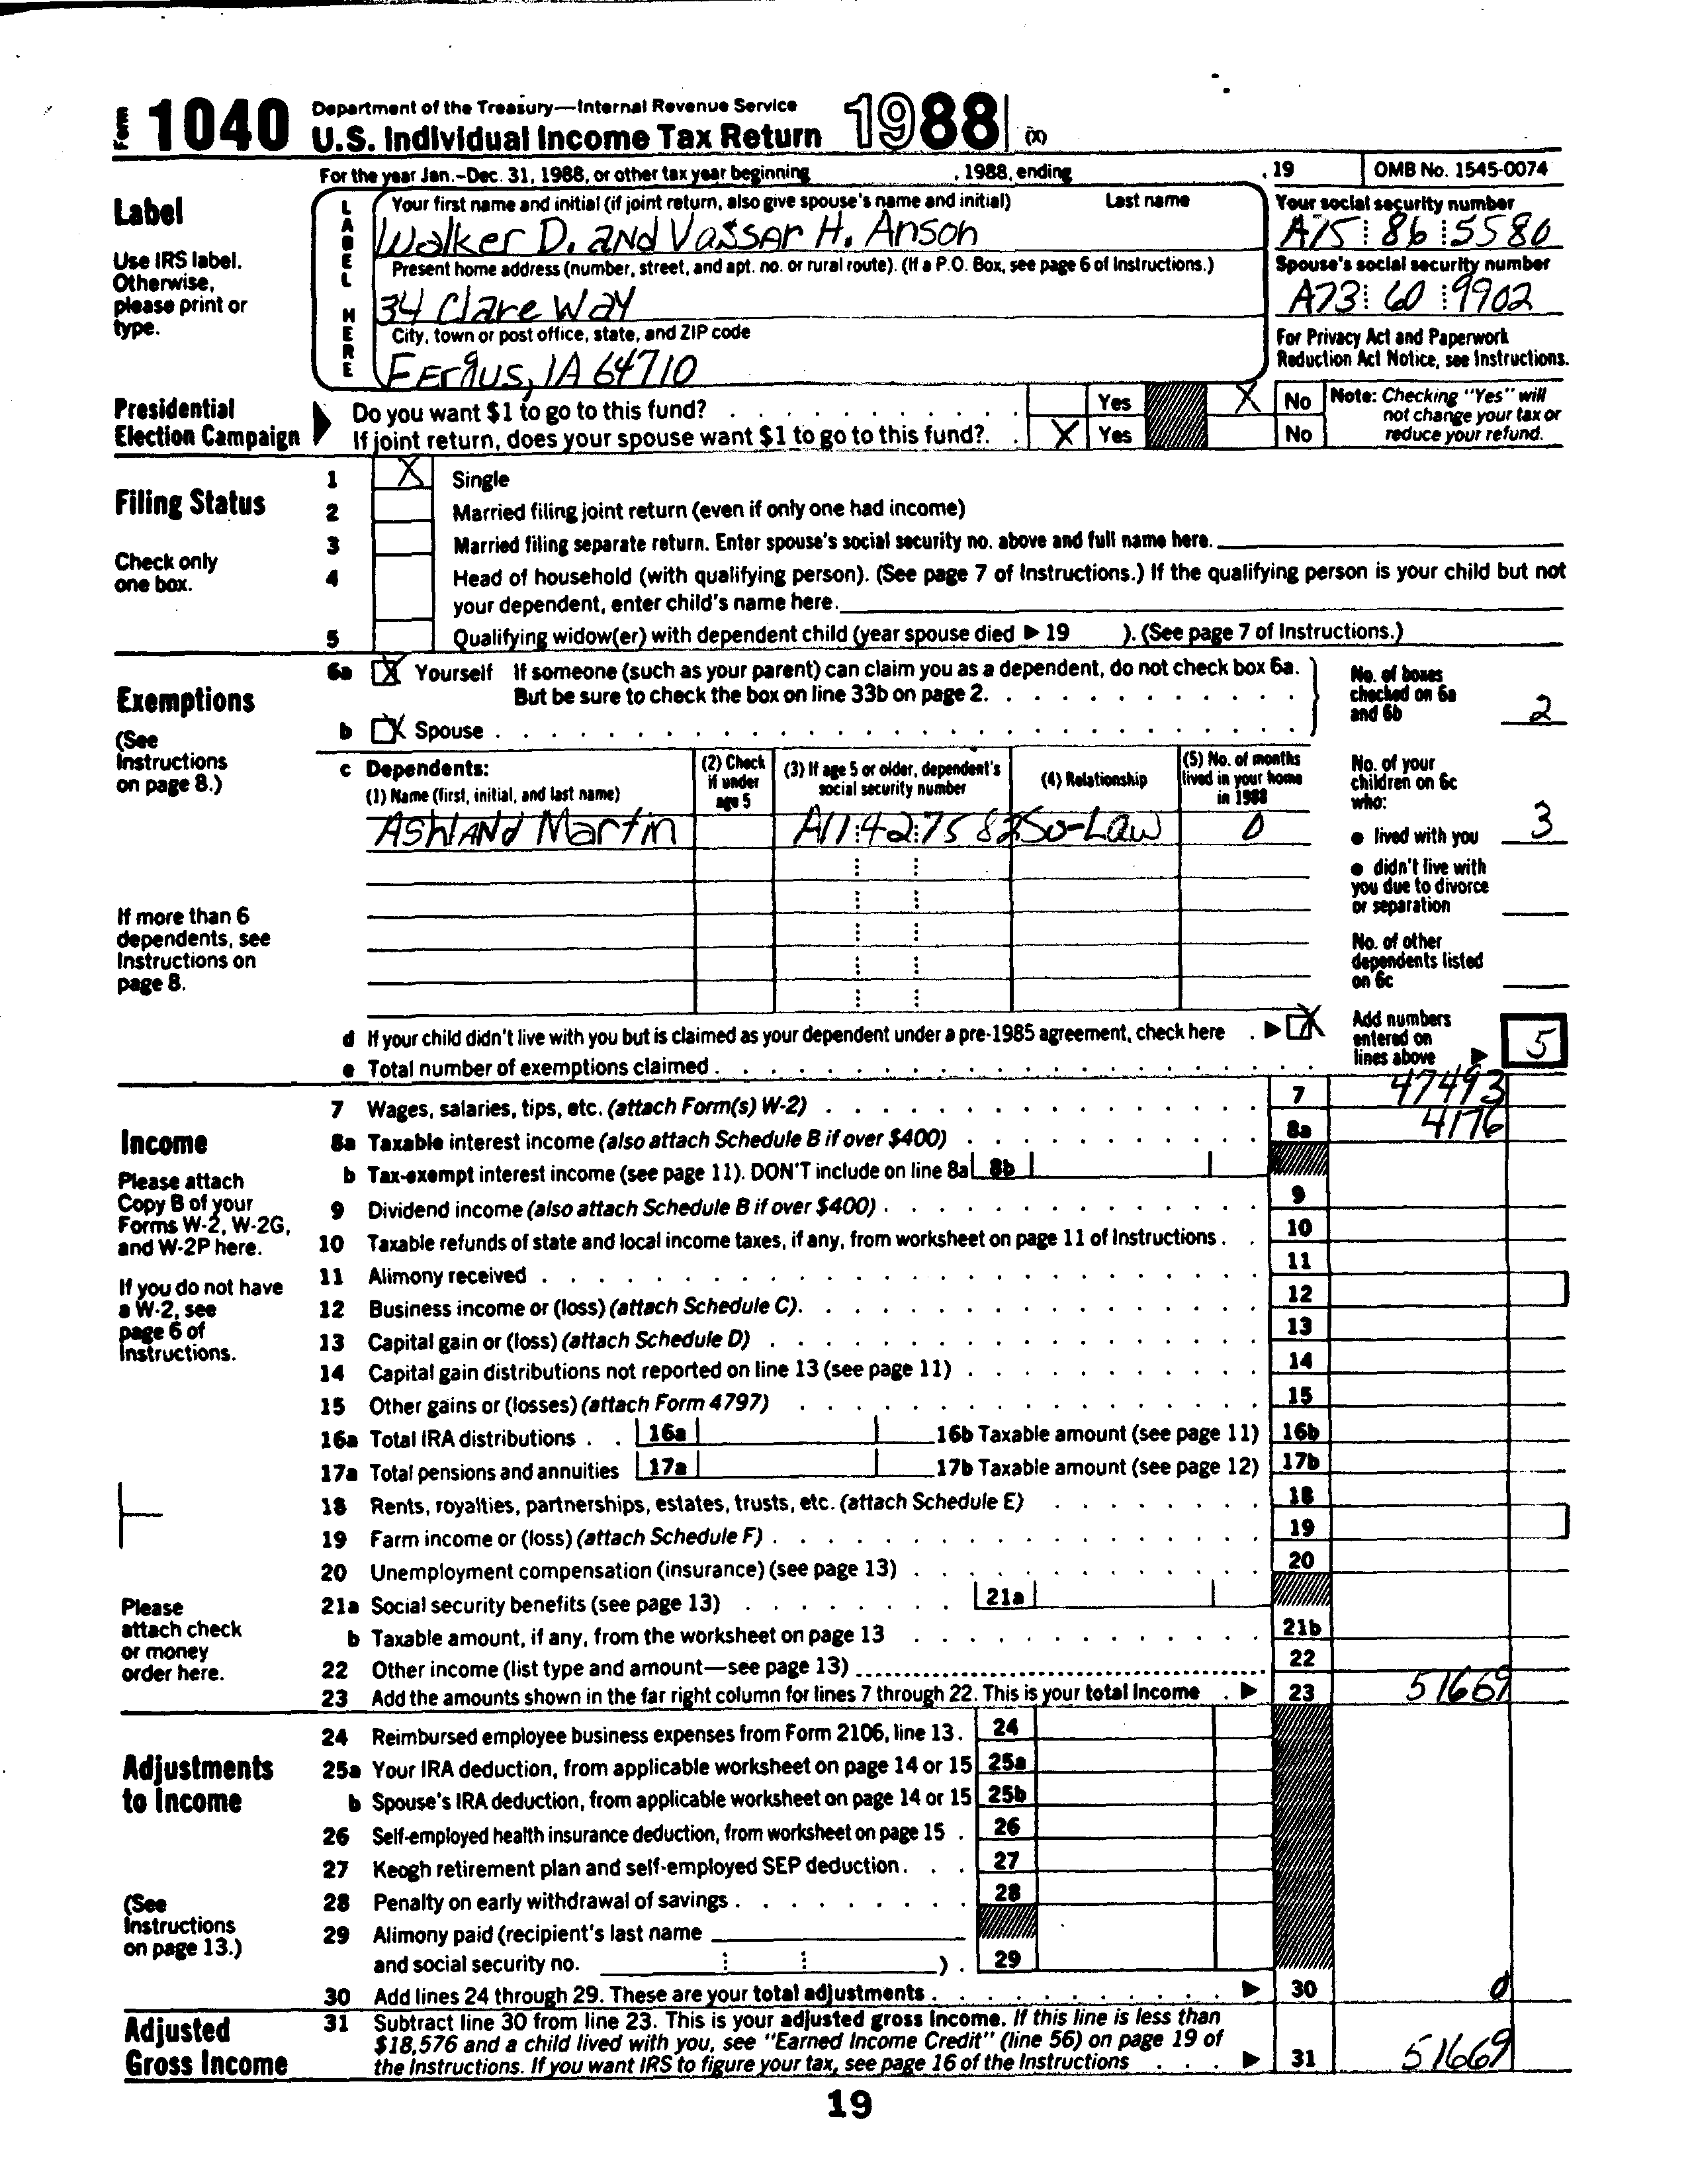 Form 1040 Department of the Treasury—Internal Revenue Service
U.S. Individual Income Tax Return 1988 (X)
For the year Jan.-Dec. 31, 1988, or other tax year beginning , 1988, ending , 19 OMB No. 1545-0074
Label
Use IRS label.
Otherwise,
please print or
type.
LABEL HERE
Your first name and initial (if joint return, also give spouse's name and initial) Last name
Walker D. and Vassar H. Anson
Present home address (number, street, and apt. no. or rural route). (If a P.O. Box, see page 6 of Instructions.)
34 Clare Way
City, town or post office, state, and ZIP code
Fergus, IA 64710
Your social security number
A75 86 5580
Spouse's social security number
A73 60 9902
For Privacy Act and Paperwork
Reduction Act Notice, see Instructions.
Presidential
Election Campaign
Do you want $1 to go to this fund? Yes X No
If joint return, does your spouse want $1 to go to this fund? X Yes No
Note: Checking "Yes" will
not change your tax or
reduce your refund.
Filing Status
Check only
one box.
1 X Single
2 Married filing joint return (even if only one had income)
3 Married filing separate return. Enter spouse's social security no. above and full name here.
4 Head of household (with qualifying person). (See page 7 of Instructions.) If the qualifying person is your child but not
your dependent, enter child's name here.
5 Qualifying widow(er) with dependent child (year spouse died ▶ 19 ). (See page 7 of Instructions.)
Exemptions
(See
Instructions
on page 8.)
6a X Yourself If someone (such as your parent) can claim you as a dependent, do not check box 6a.
But be sure to check the box on line 33b on page 2.
b X Spouse
No. of boxes
checked on 6a
and 6b 2
c Dependents:
(1) Name (first, initial, and last name)
(2) Check
if under
age 5
(3) If age 5 or older, dependent's
social security number
(4) Relationship
(5) No. of months
lived in your home
in 1988
Ashland Martin A11 42 7582 So-Law 0
No. of your
children on 6c
who:
● lived with you 3
● didn't live with
you due to divorce
or separation
No. of other
dependents listed
on 6c
If more than 6
dependents, see
Instructions on
page 8.
d If your child didn't live with you but is claimed as your dependent under a pre-1985 agreement, check here ▶ X
e Total number of exemptions claimed
Add numbers
entered on
lines above ▶ 5
Income
Please attach
Copy B of your
Forms W-2, W-2G,
and W-2P here.
If you do not have
a W-2, see
page 6 of
Instructions.
Please
attach check
or money
order here.
7 Wages, salaries, tips, etc. (attach Form(s) W-2) 7 47493
8a Taxable interest income (also attach Schedule B if over $400) 8a 4176
b Tax-exempt interest income (see page 11). DON'T include on line 8a 8b
9 Dividend income (also attach Schedule B if over $400) 9
10 Taxable refunds of state and local income taxes, if any, from worksheet on page 11 of Instructions 10
11 Alimony received 11
12 Business income or (loss) (attach Schedule C) 12
13 Capital gain or (loss) (attach Schedule D) 13
14 Capital gain distributions not reported on line 13 (see page 11) 14
15 Other gains or (losses) (attach Form 4797) 15
16a Total IRA distributions 16a 16b Taxable amount (see page 11) 16b
17a Total pensions and annuities 17a 17b Taxable amount (see page 12) 17b
18 Rents, royalties, partnerships, estates, trusts, etc. (attach Schedule E) 18
19 Farm income or (loss) (attach Schedule F) 19
20 Unemployment compensation (insurance) (see page 13) 20
21a Social security benefits (see page 13) 21a
b Taxable amount, if any, from the worksheet on page 13 21b
22 Other income (list type and amount—see page 13) 22
23 Add the amounts shown in the far right column for lines 7 through 22. This is your total income ▶ 23 51669
Adjustments
to Income
(See
Instructions
on page 13.)
24 Reimbursed employee business expenses from Form 2106, line 13. 24
25a Your IRA deduction, from applicable worksheet on page 14 or 15 25a
b Spouse's IRA deduction, from applicable worksheet on page 14 or 15 25b
26 Self-employed health insurance deduction, from worksheet on page 15 26
27 Keogh retirement plan and self-employed SEP deduction 27
28 Penalty on early withdrawal of savings 28
29 Alimony paid (recipient's last name
and social security no. ) 29
30 Add lines 24 through 29. These are your total adjustments ▶ 30 0
Adjusted
Gross Income
31 Subtract line 30 from line 23. This is your adjusted gross income. If this line is less than
$18,576 and a child lived with you, see "Earned Income Credit" (line 56) on page 19 of
the Instructions. If you want IRS to figure your tax, see page 16 of the Instructions ▶ 31 51669
19